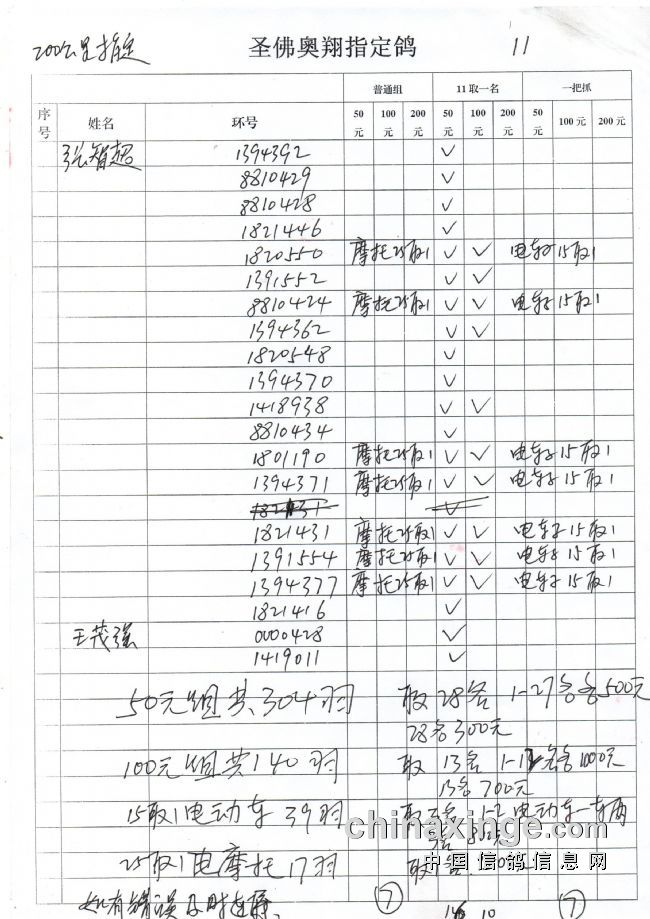 200公里指定 圣佛奥翔指定鸽 11
普通组 11取一名 一把抓
序号 姓名 环号 50元 100元 200元 50元 100元 200元 50元 100元 200元
张智超 1394392 ✓
8810429 ✓
8810428 ✓
1821446 ✓
1820550 摩托25取1 ✓ ✓ 电车子15取1
1391552 ✓ ✓
8810424 摩托25取1 ✓ ✓ 电车子15取1
1394362 ✓ ✓
1820548 ✓
1394370 ✓
1418938 ✓ ✓
8810434 ✓
1801190 摩托25取1 ✓ ✓ 电车子15取1
1394371 摩托25取1 ✓ ✓ 电车子15取1
1821431 摩托25取1 ✓ ✓ 电车子15取1
1391554 摩托25取1 ✓ ✓ 电车子15取1
1394377 摩托25取1 ✓ ✓ 电车子15取1
1821416 ✓
王茂强 0000428 ✓
1419011 ✓
50元组共304羽 取28名 1-27名各500元
28名300元
100元组共140羽 取13名 1-12名各1000元
13名700元
15取1电动车39羽 1-2电动车一车两
25取1电摩托17羽 取
chinaxinge.com
中国信鸽信息网
如有错误及时 ⑦ 10 ⑦